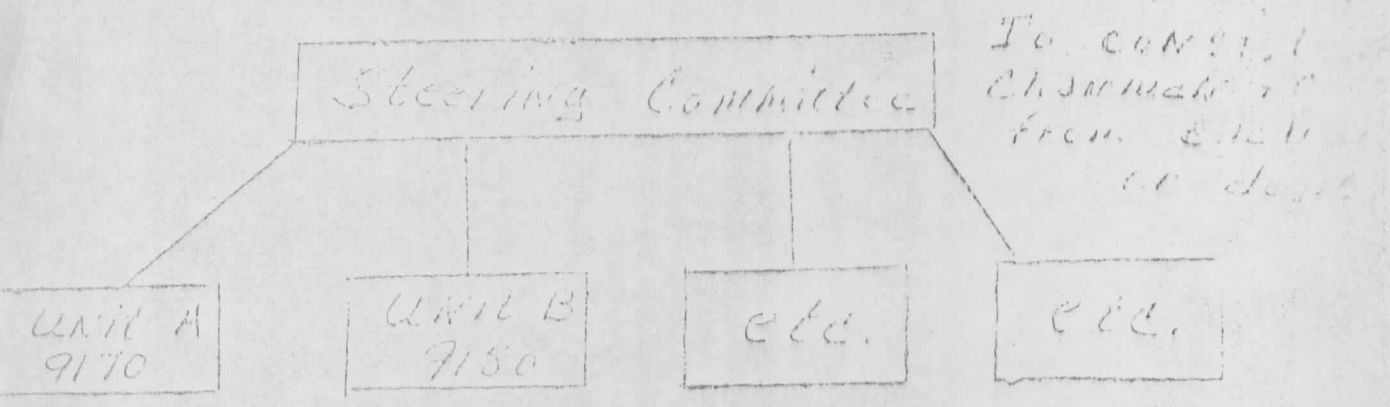 Steering Committee
To consist
Chairman or
from each
Unit A
9170
Unit B
9150
etc.
etc.